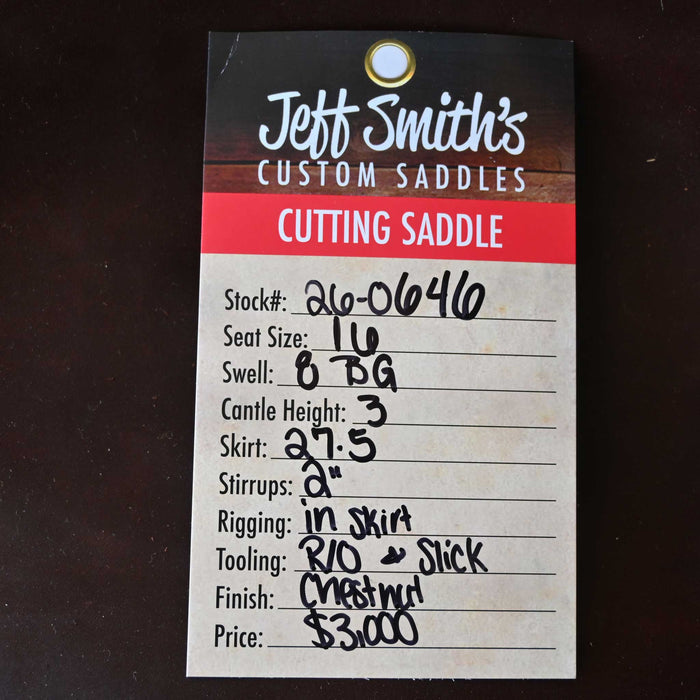 Jeff Smith's
CUSTOM SADDLES
CUTTING SADDLE
Stock#: 26-0646
Seat Size: 16
Swell: 8 BG
Cantle Height: 3
Skirt: 27.5
Stirrups: 2"
Rigging: in skirt
Tooling: R/O & Slick
Finish: Chestnut
Price: $3,000